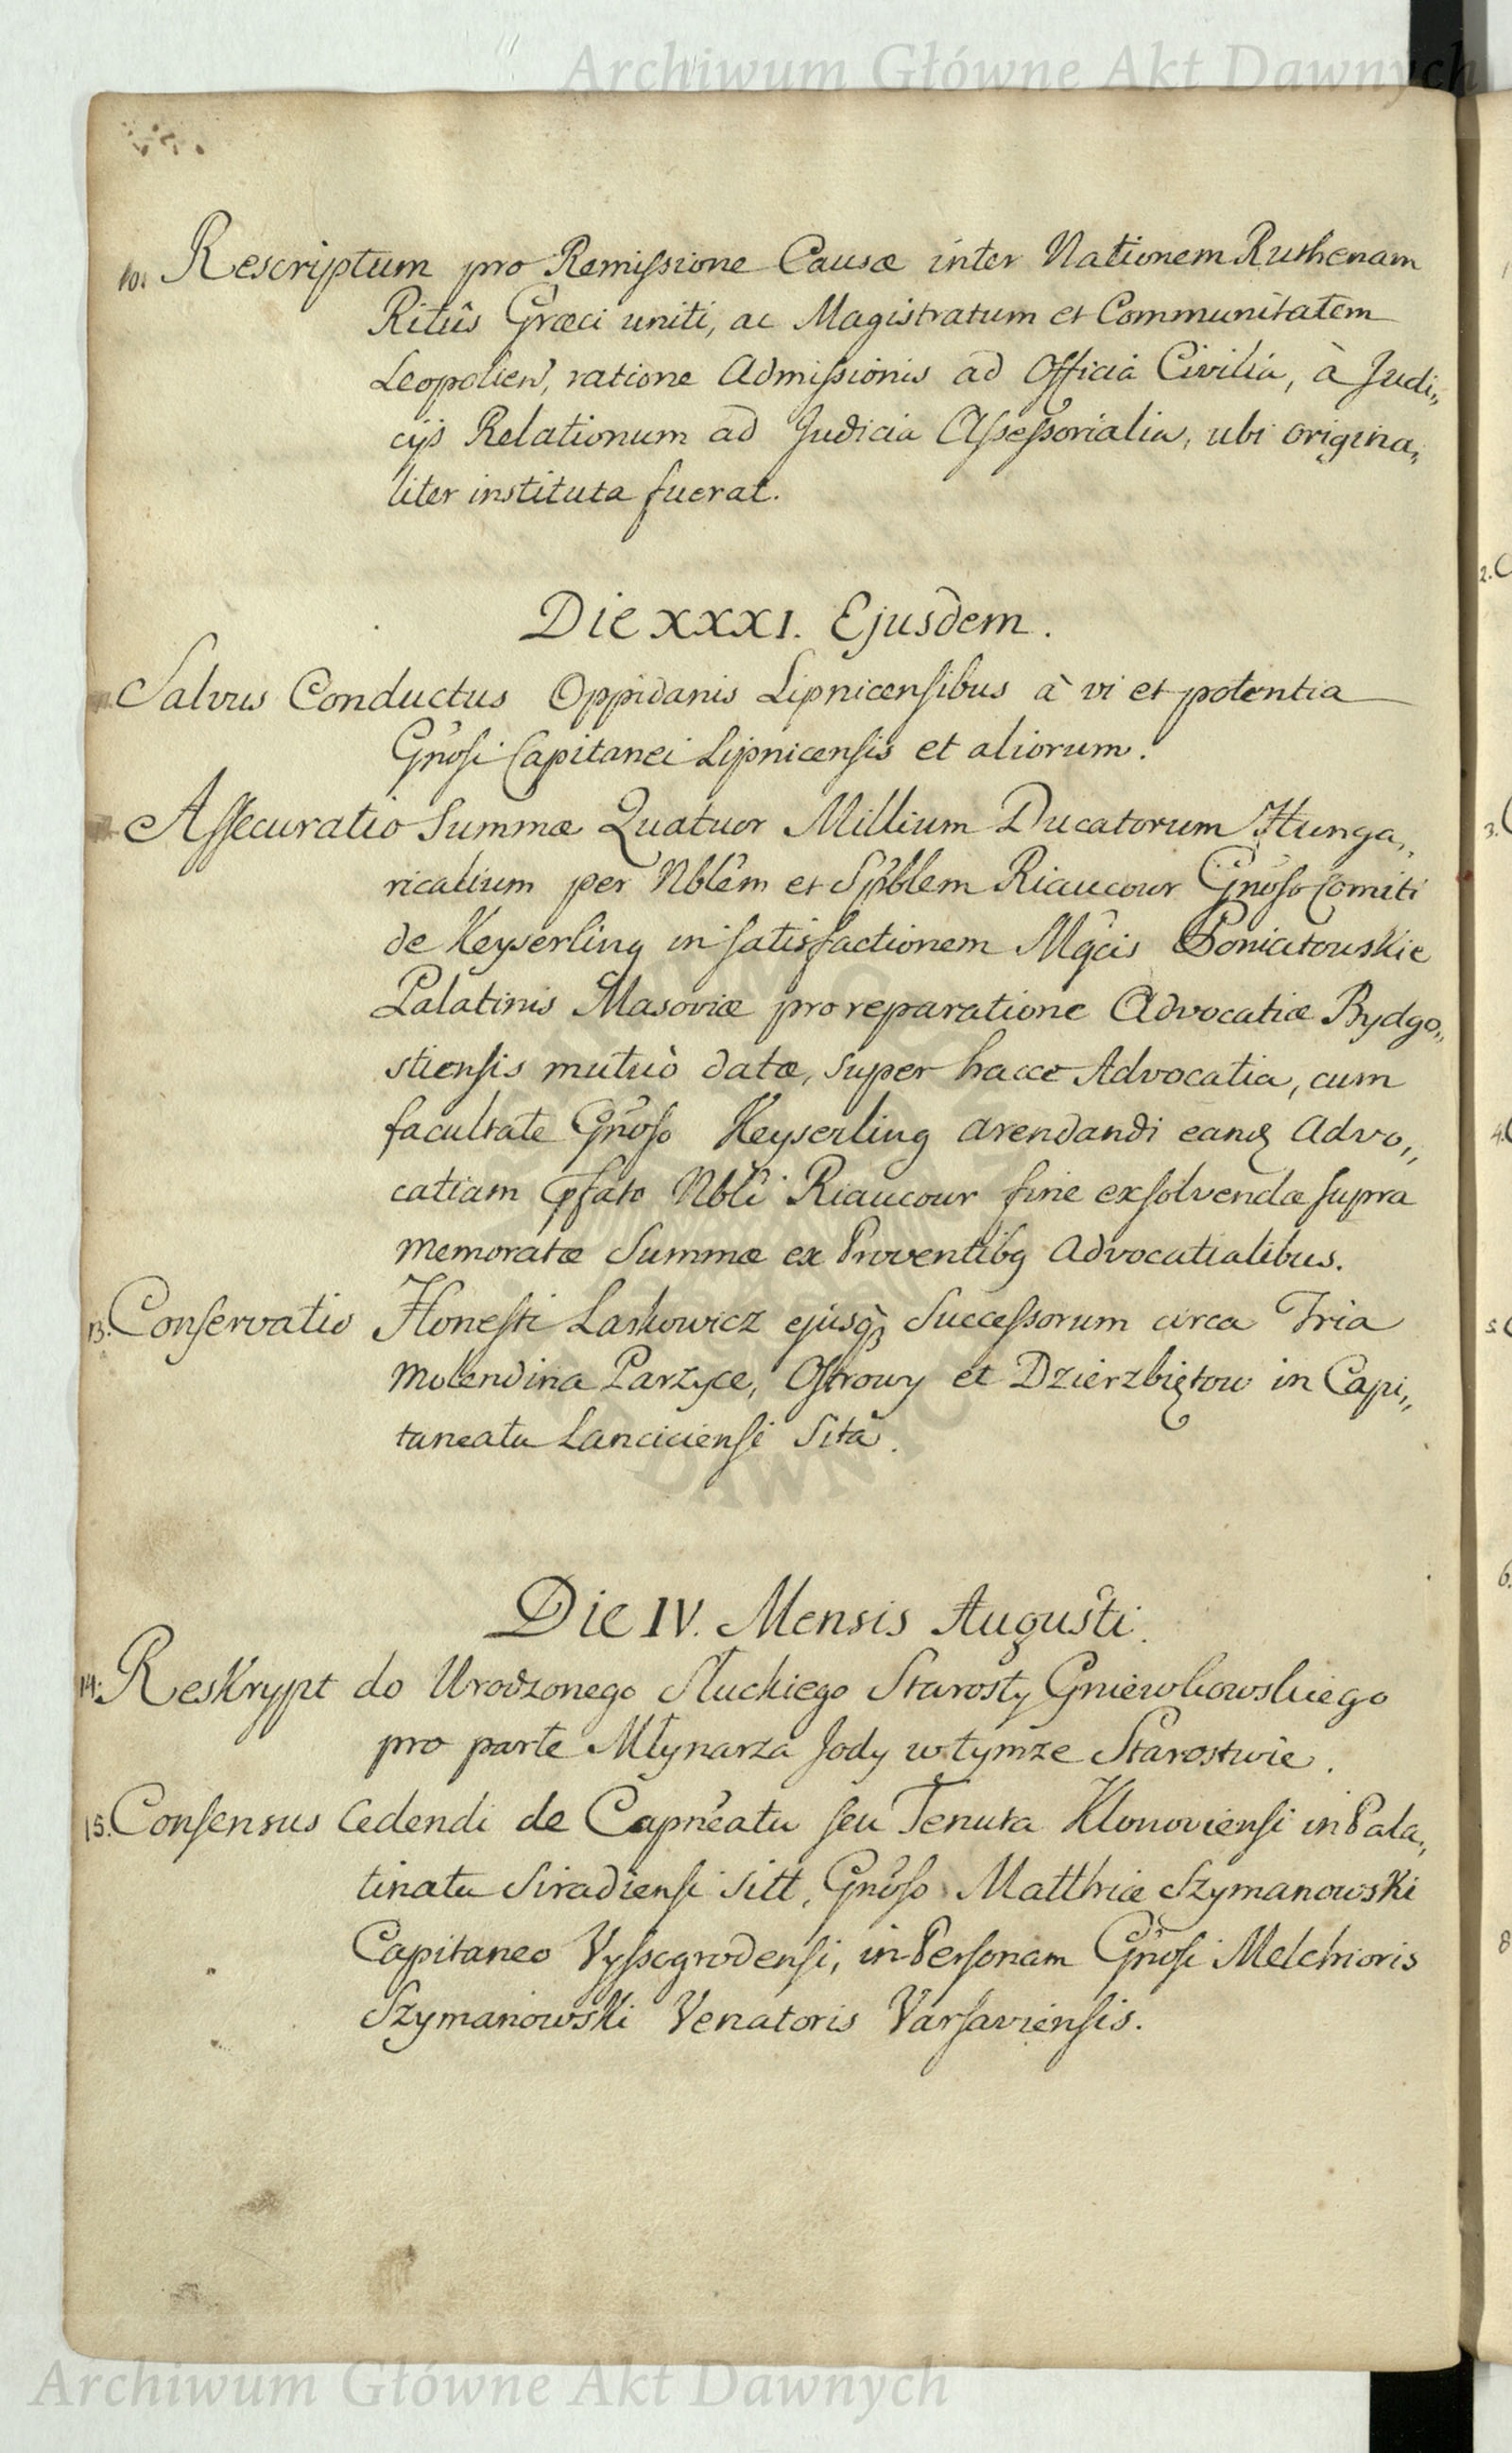 Archiwum Główne Akt Dawnych
10. Rescriptum pro Remissione Causæ inter Nationem Ruthenam
Ritûs Græci uniti, ac Magistratum et Communitatem
Leopolien, ratione Admissionis ad Officia Civilia, à Judi„
cijs Relationum ad Judicia Assessorialia, ubi origina„
liter instituta fuerat.
Die XXXI. Ejusdem.
Salvus Conductus Oppidanis Lipnicensibus à vi et potentia
Gnosi Capitanei Lipnicensis et aliorum.
Assecuratio Summæ Quatuor Millium Ducatorum Hunga„
ricalium per Nblem et Spblem Riaucour Gnoso Comiti
de Keyserling in satisfactionem Mgcis Poniatowskie
Palatinis Masoviæ pro reparatione Advocatiæ Bydgo„
stiensis mutuò datæ, super hacce Advocatia, cum
facultate Gnoso Keyserling arendandi eandq Advo„
catiam pfato Nbli Riaucour fine exsolvendæ supra
memoratæ Summæ ex Proventibq Advocatialibus.
13. Conservatio Honesti Laskowicz ejusq Successorum circa Tria
Molendina Parzyce, Ostrowy et Dzierzbiętow in Capi„
taneatu Lanciciensi Sita.
Die IV. Mensis Augusti.
14. Reskrypt do Urodzonego Słuckiego Starosty Gniewkowskiego
pro parte Młynarza Jody w tymże Starostwie.
15. Consensus Cedendi de Capneatu seu Tenuta Klonoviensi in Pala„
tinatu Siradiensi sitt, Gnoso Matthiæ Szymanowski
Capitaneo Vyssogrodensi, in Personam Gnosi Melchioris
Szymanowski Venatoris Varsaviensis.
Archiwum Główne Akt Dawnych